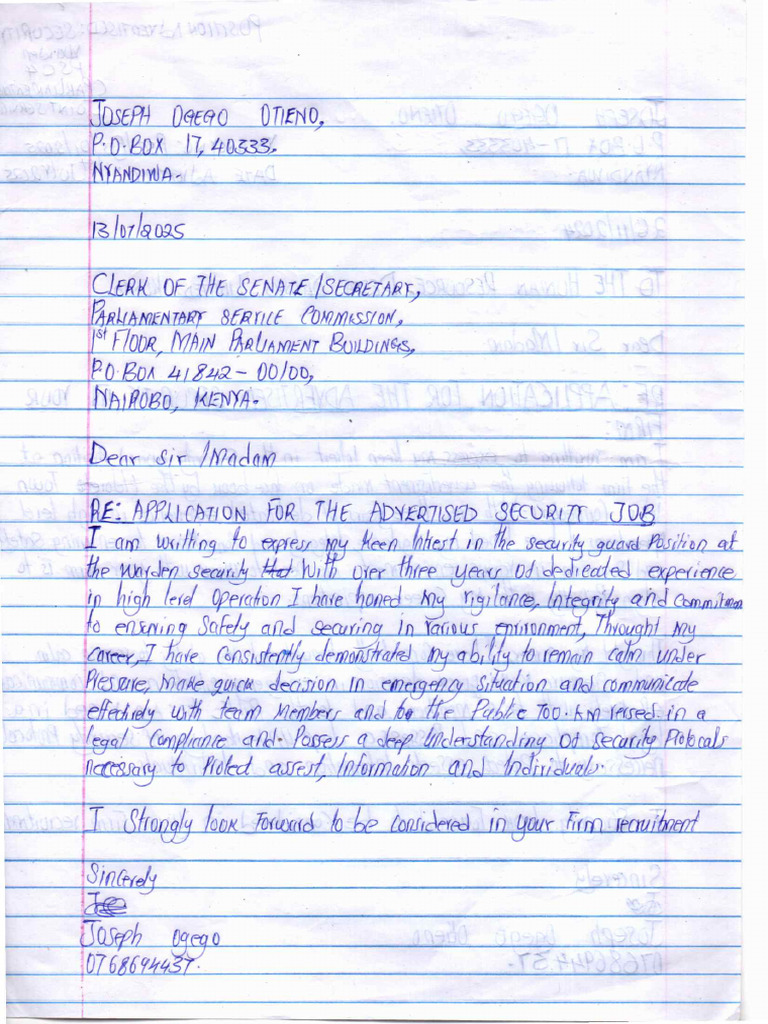 JOSEPH OGEGO OTIENO,
P.O.BOX 17, 40333.
NYANDIWA.
13/07/2025
CLERK OF THE SENATE/SECRETARY,
PARLIAMENTARY SERVICE COMMISSION,
1st FLOOR, MAIN PARLIAMENT BUILDINGS,
P.O.BOX 41842-00100,
NAIROBO, KENYA.
Dear Sir/Madam
RE: APPLICATION FOR THE ADVERTISED SECURITY JOB
I am writting to express my keen Intrest in the security guard Position at
the warden security With over three years of dedicated experience
in high level Operation I have honed my vigilance, Integrity and commitmen
to ensuring Safely and securing in various environment, Throught My
career, I have consistently demonstrated my ability to remain calm under
Pressure, Make quick decision in emergency situation and communicate
effectively with team Members and to the Public Too. Am versed in a
legal compliance and Possess a deep Understanding of security Protocals
necessary to Protect assest, Information and Individuals.
I Strongly look Forward to be considered in your Firm recruitment
Sincerely
Joseph Ogego
0768694437.